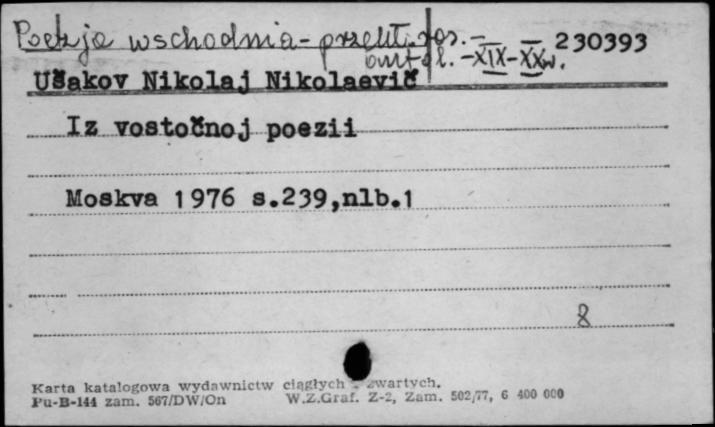 Poezja wschodnia - przekł. ros. - 230393
antol. - XIX - XXw.
Ušakov Nikolaj Nikolaevič
Iz vostočnoj poezii
Moskva 1976 s.239,nlb.1
8
Karta katalogowa wydawnictw ciągłych - zwartych.
Pu-B-144 zam. 567/DW/On W.Z.Graf. Z-2, Zam. 502/77, 6 400 000